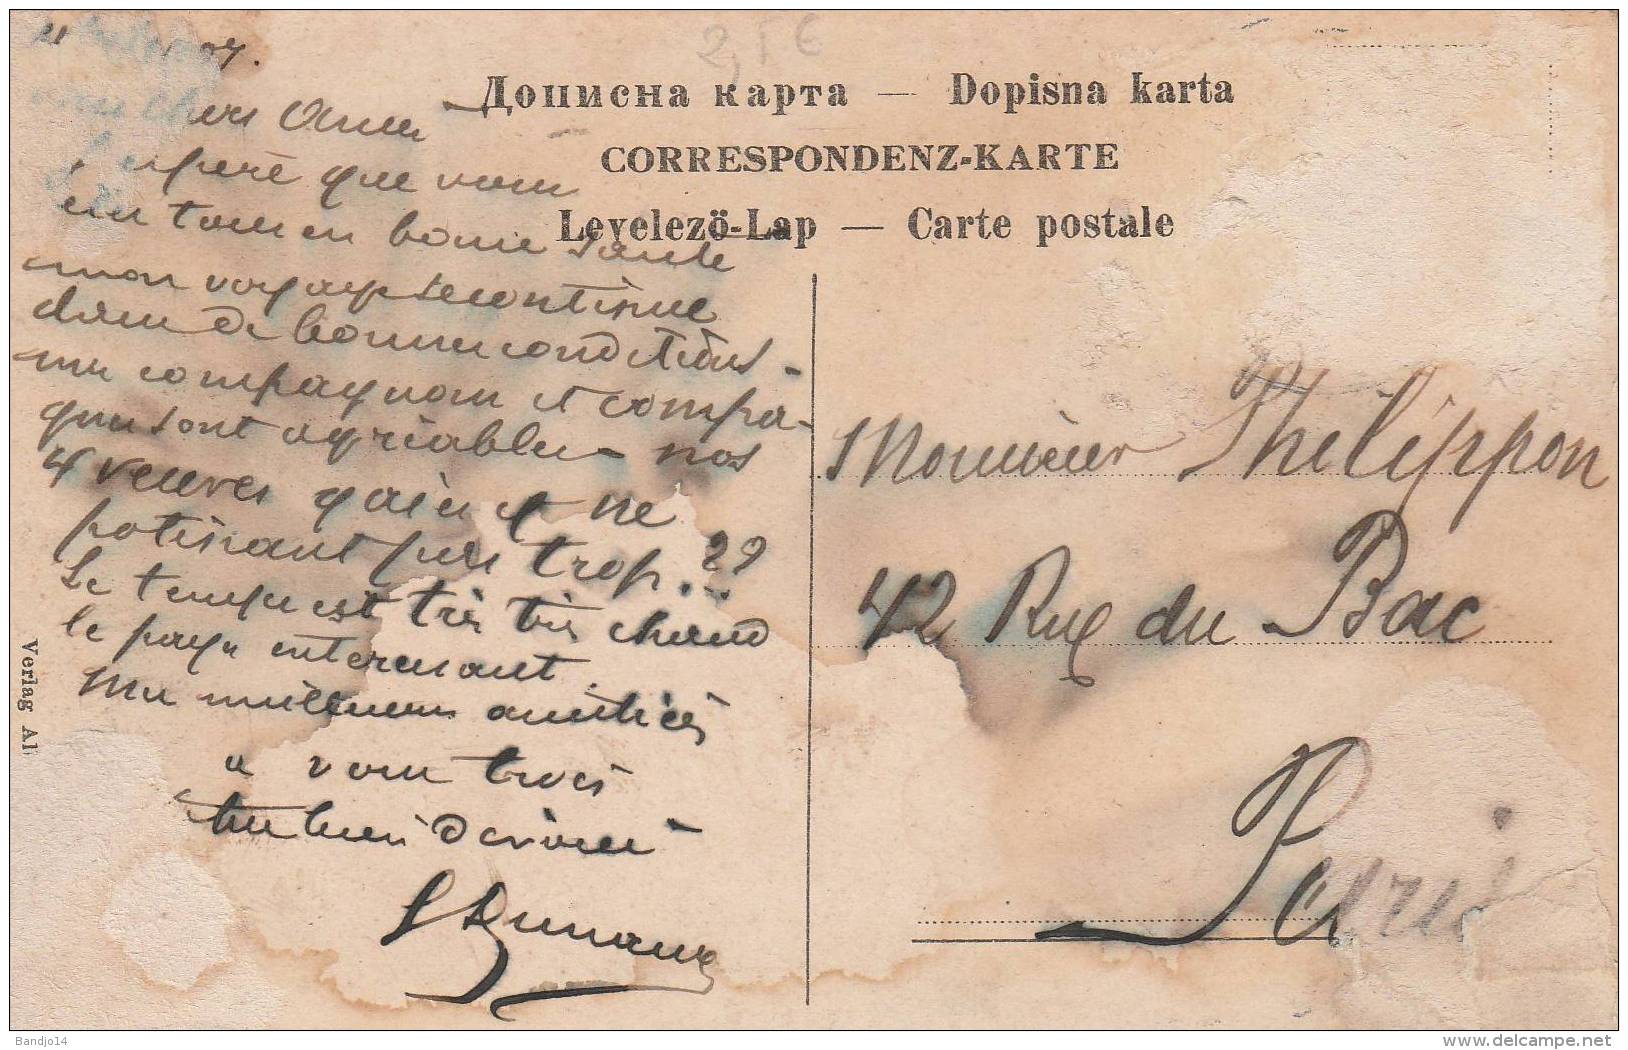 2,5 €
07.
Дописна карта — Dopisna karta
CORRESPONDENZ-KARTE
Levelezö-Lap — Carte postale
chers Amis
J'espère que vous
en bonne santé
mon voyage se continue
dans de bonnes conditions -
mes compagnons et compa-
gnes sont agréables - nos
4 veuves gaies et ne
potinant pas trop..??
Le temps est très très chaud
le pays intéressant.
Mes meilleures amitiés
a vous trois
Monsieur Philippon
42 Rue du Bac
Paris
Verlag Al
Bandjo14
www.delcampe.net